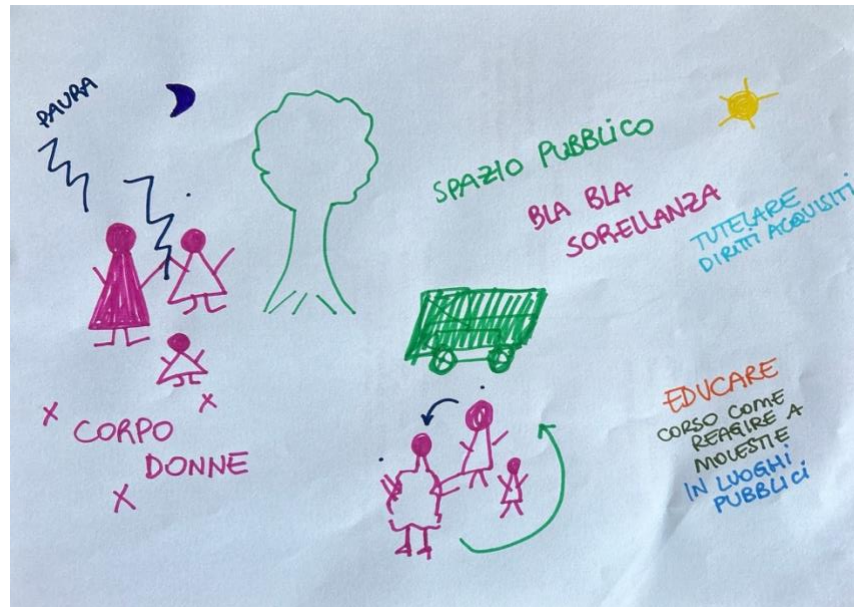 PAURA
SPAZIO PUBBLICO
BLA BLA
SORELLANZA
TUTELARE
DIRITTI ACQUISITI
CORPO
DONNE
EDUCARE
CORSO COME
REAGIRE A
MOLESTIE
IN LUOGHI
PUBBLICI